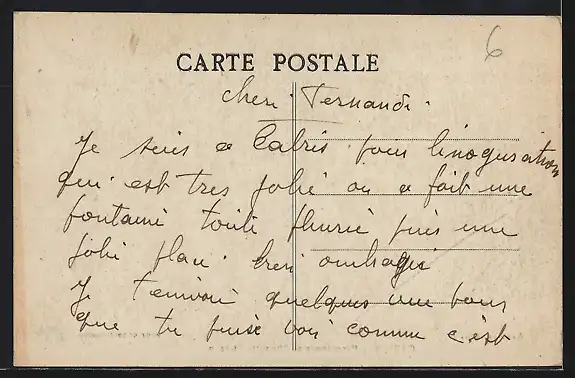 6
CARTE POSTALE
cheri Fernandi.
Je suis a Cabris pour linoguration
qui est tres jolie on a fait une
fontaine toute fleurie puis une
jolie place bien ombragé
Je tenvoie quelques une pour
que tu puise voir comme c'est